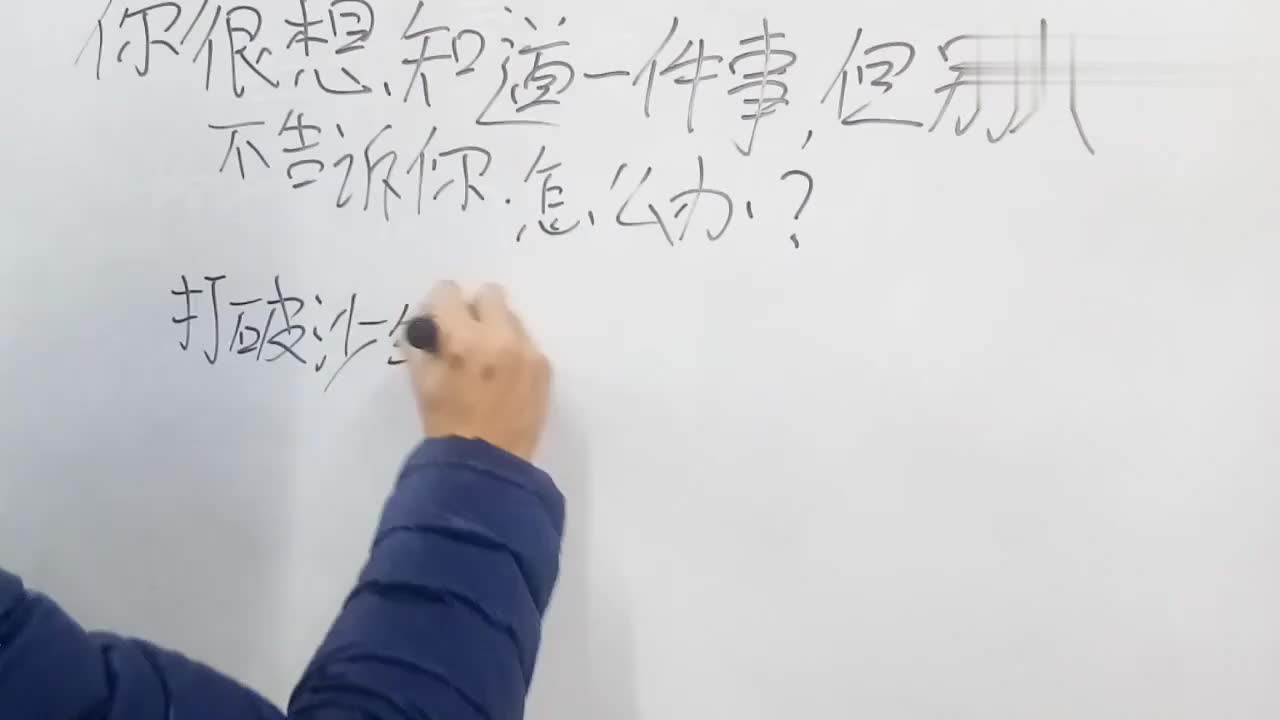 你很想知道一件事,但别人
不告诉你.怎么办?
打破沙